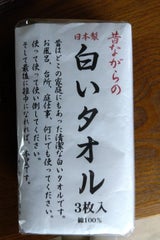 昔ながらの
日本製
白いタオル
3枚入
綿100%
昔はどこの家庭にもあった清潔な白いタオルです。
お風呂、台所、庭仕事、何にでも使ってください。
使って使って使い倒してください。
そして最後に雑巾になれれば本望です。